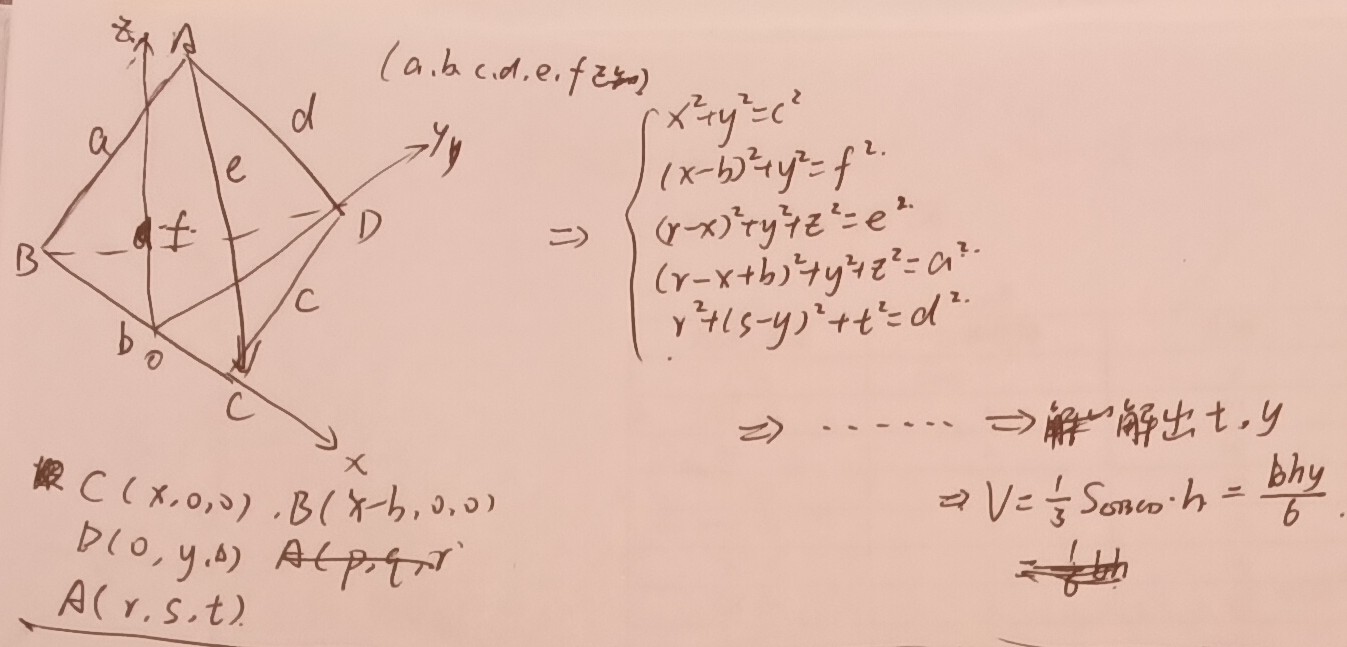 z
A
(a.b.c.d.e.f
a
d
e
y
f
D
B
c
b
o
C
x
x²+y²=c²
(x-b)²+y²=f².
⇒
(r-x)²+y²+z²=e².
(r-x+b)²+y²+z²=a².
r²+(s-y)²+t²=d².
⇒ ...... ⇒ 解出 t.y
C(x,0,0).B(x-b,0,0)
D(0,y,0)
A(r,s,t).
⇒ V=1/3 S·h = bhy/6.